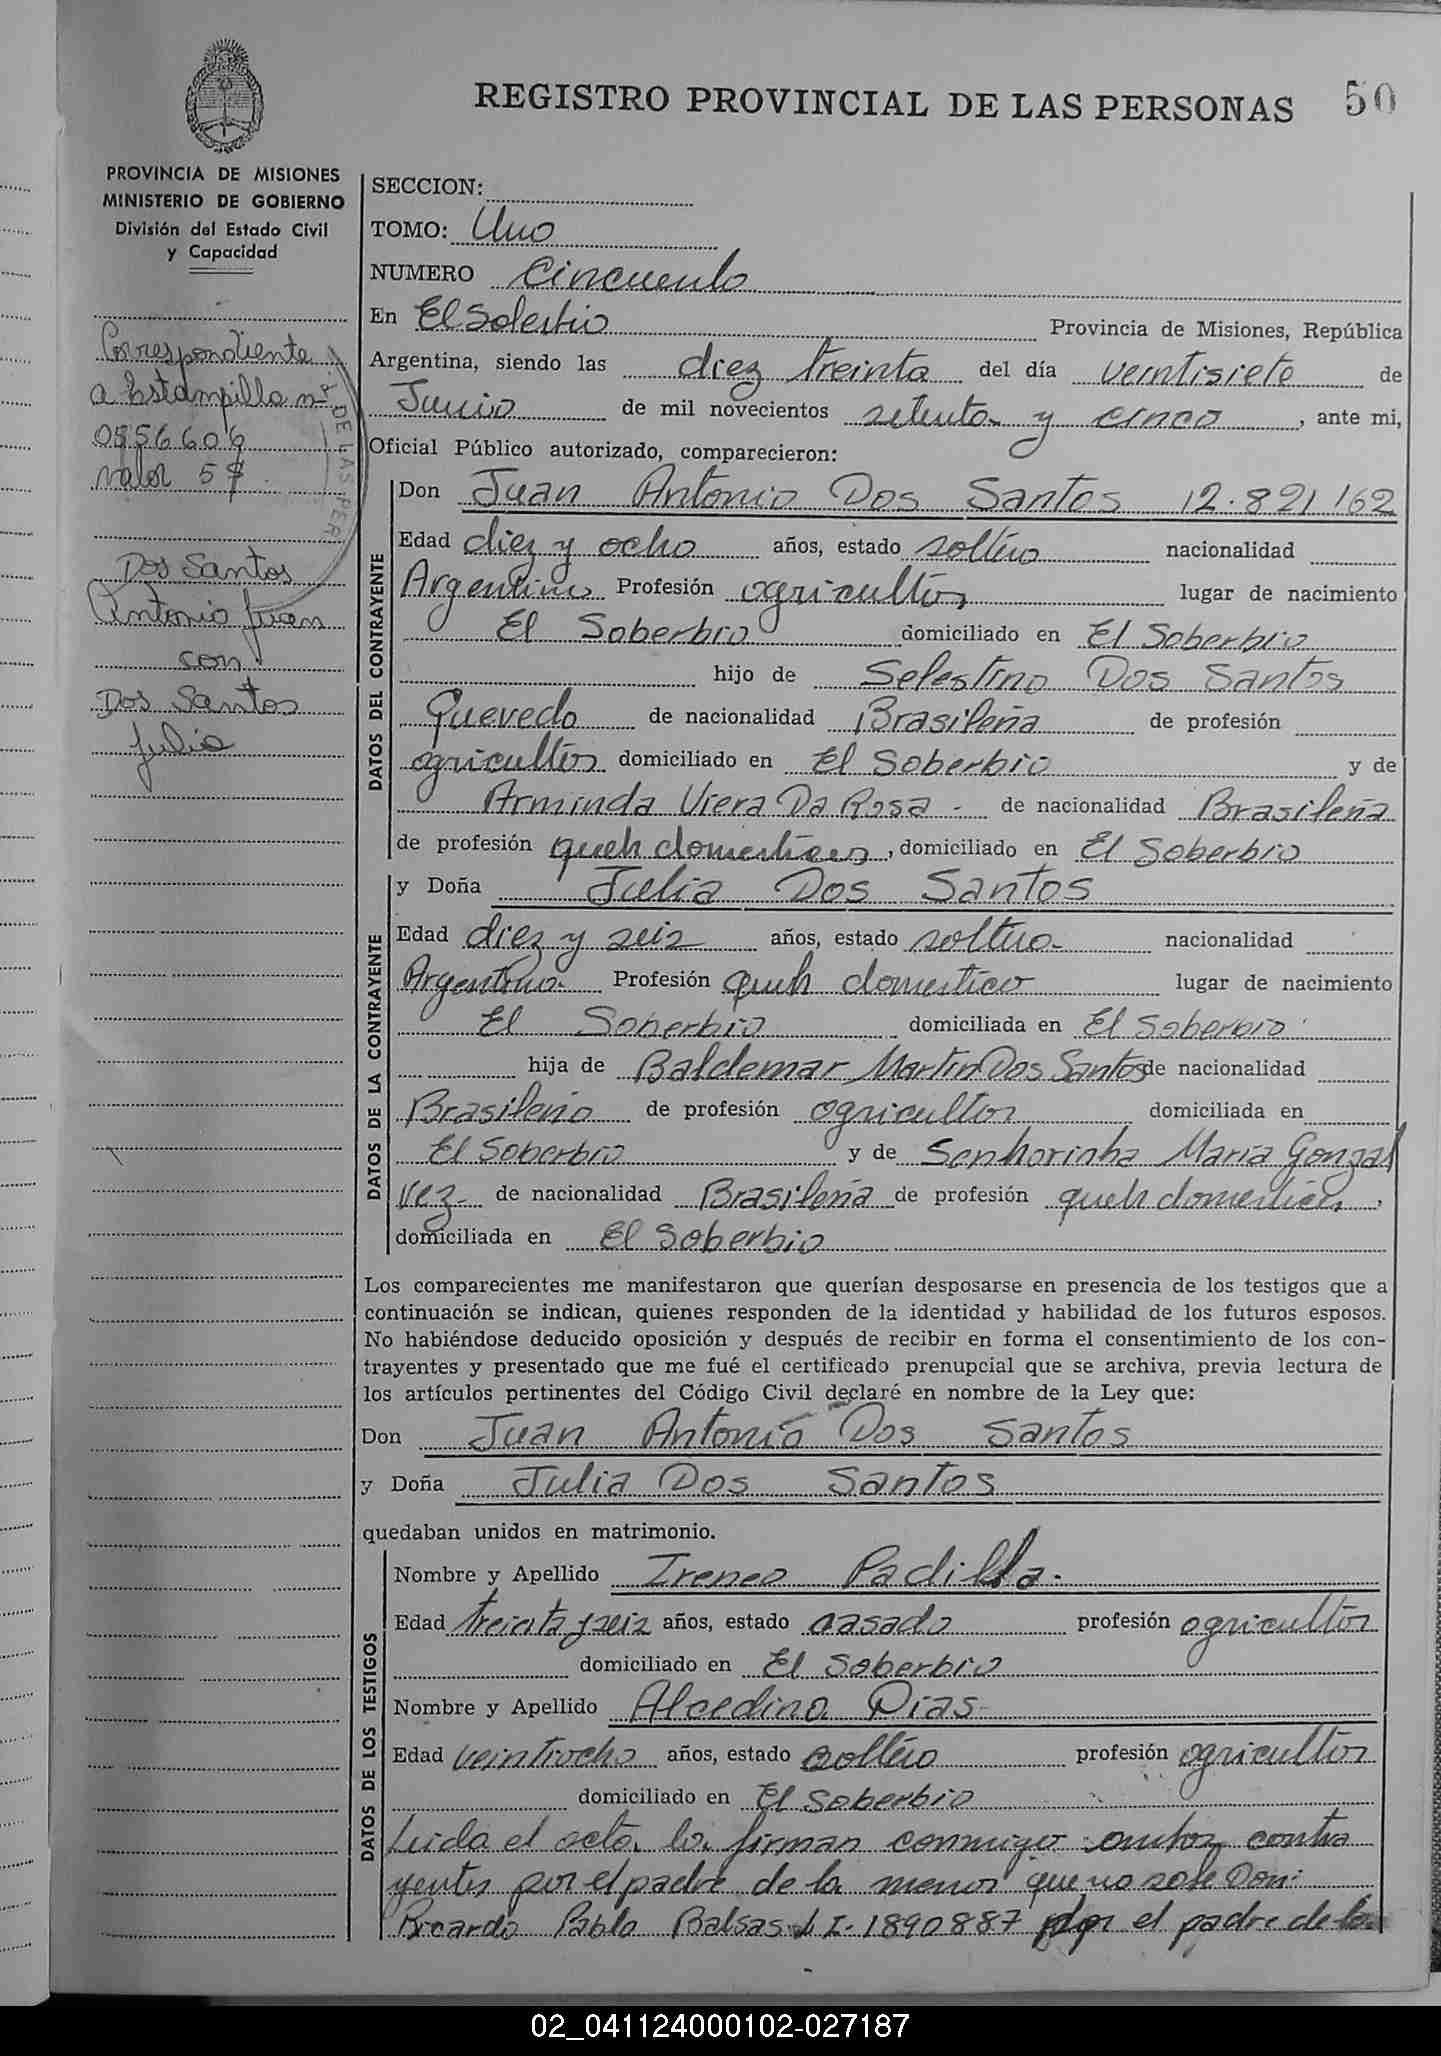 REGISTRO PROVINCIAL DE LAS PERSONAS 50
PROVINCIA DE MISIONES
MINISTERIO DE GOBIERNO
División del Estado Civil
y Capacidad
Correspondiente
a Estampilla nº
0556606
valor 5$
DE LAS PER
Dos Santos
Antonio Juan
con
Dos Santos
Julia
SECCION:
TOMO: Uno
NUMERO Cincuenta
En El Soberbio Provincia de Misiones, República
Argentina, siendo las diez treinta del día veintisiete de
Junio de mil novecientos setenta y cinco, ante mi,
Oficial Público autorizado, comparecieron:
DATOS DEL CONTRAYENTE
Don Juan Antonio Dos Santos 12.821162
Edad diez y ocho años, estado soltero nacionalidad
Argentino Profesión agricultor lugar de nacimiento
El Soberbio domiciliado en El Soberbio
hijo de Selestino Dos Santos
Quevedo de nacionalidad Brasileña de profesión
agricultor domiciliado en El Soberbio y de
Arminda Viera Da Rosa - de nacionalidad Brasileña
de profesión queh domesticos, domiciliado en El Soberbio
DATOS DE LA CONTRAYENTE
y Doña Julia Dos Santos
Edad diez y seis años, estado soltera nacionalidad
Argentina Profesión queh domestico lugar de nacimiento
El Soberbio domiciliada en El Soberbio
hija de Baldemar Martin Dos Santos de nacionalidad
Brasileño de profesión agricultor domiciliada en
El Soberbio y de Senhorinha Maria Gonzal
vez de nacionalidad Brasileña de profesión queh domesticos,
domiciliada en El Soberbio
Los comparecientes me manifestaron que querían desposarse en presencia de los testigos que a
continuación se indican, quienes responden de la identidad y habilidad de los futuros esposos.
No habiéndose deducido oposición y después de recibir en forma el consentimiento de los con-
trayentes y presentado que me fué el certificado prenupcial que se archiva, previa lectura de
los artículos pertinentes del Código Civil declaré en nombre de la Ley que:
Don Juan Antonio Dos Santos
y Doña Julia Dos Santos
quedaban unidos en matrimonio.
DATOS DE LOS TESTIGOS
Nombre y Apellido Ireneo Padilla.
Edad treinta y seis años, estado casado profesión agricultor
domiciliado en El Soberbio
Nombre y Apellido Alcedino Dias
Edad veintiocho años, estado soltero profesión agricultor
domiciliado en El Soberbio
Leida el acta la firman conmigo ambos contra
yentes por el padre de la menor que no sabe Don:
Ricardo Pablo Balsas L I-1890887 por el padre de la
02_041124000102-027187